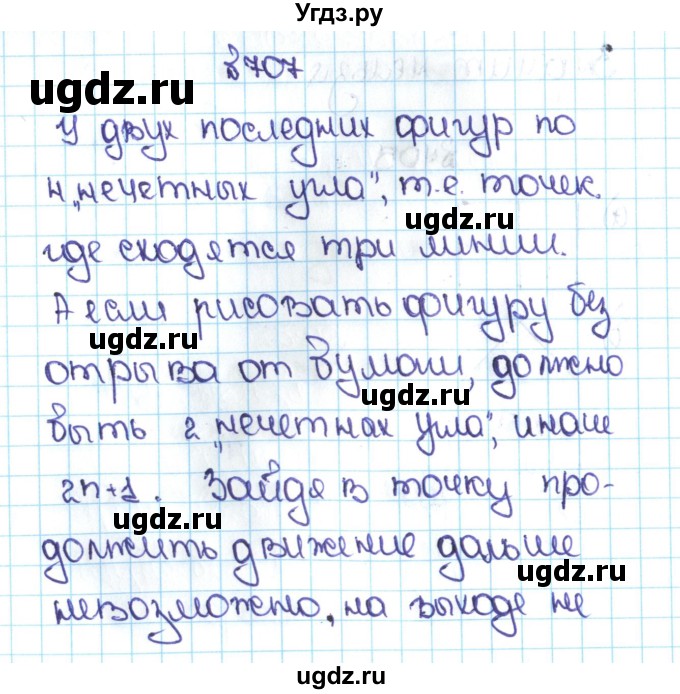 Угдз.ру
№707
ugdz.ru
У двух последних фигур по
4 „нечетных угла", т.е. точек,
ugdz.ru
где сходятся три линии.
А если рисовать фигуру без
ugdz.ru
отрыва от бумаги, должно
ugdz.ru
быть 2 „нечетнах угла", иначе
2n+1. Зайдя в точку про-
ugdz.ru
должить движение дальше
ugdz.ru
невозможно, на выходе не
ugdz.ru